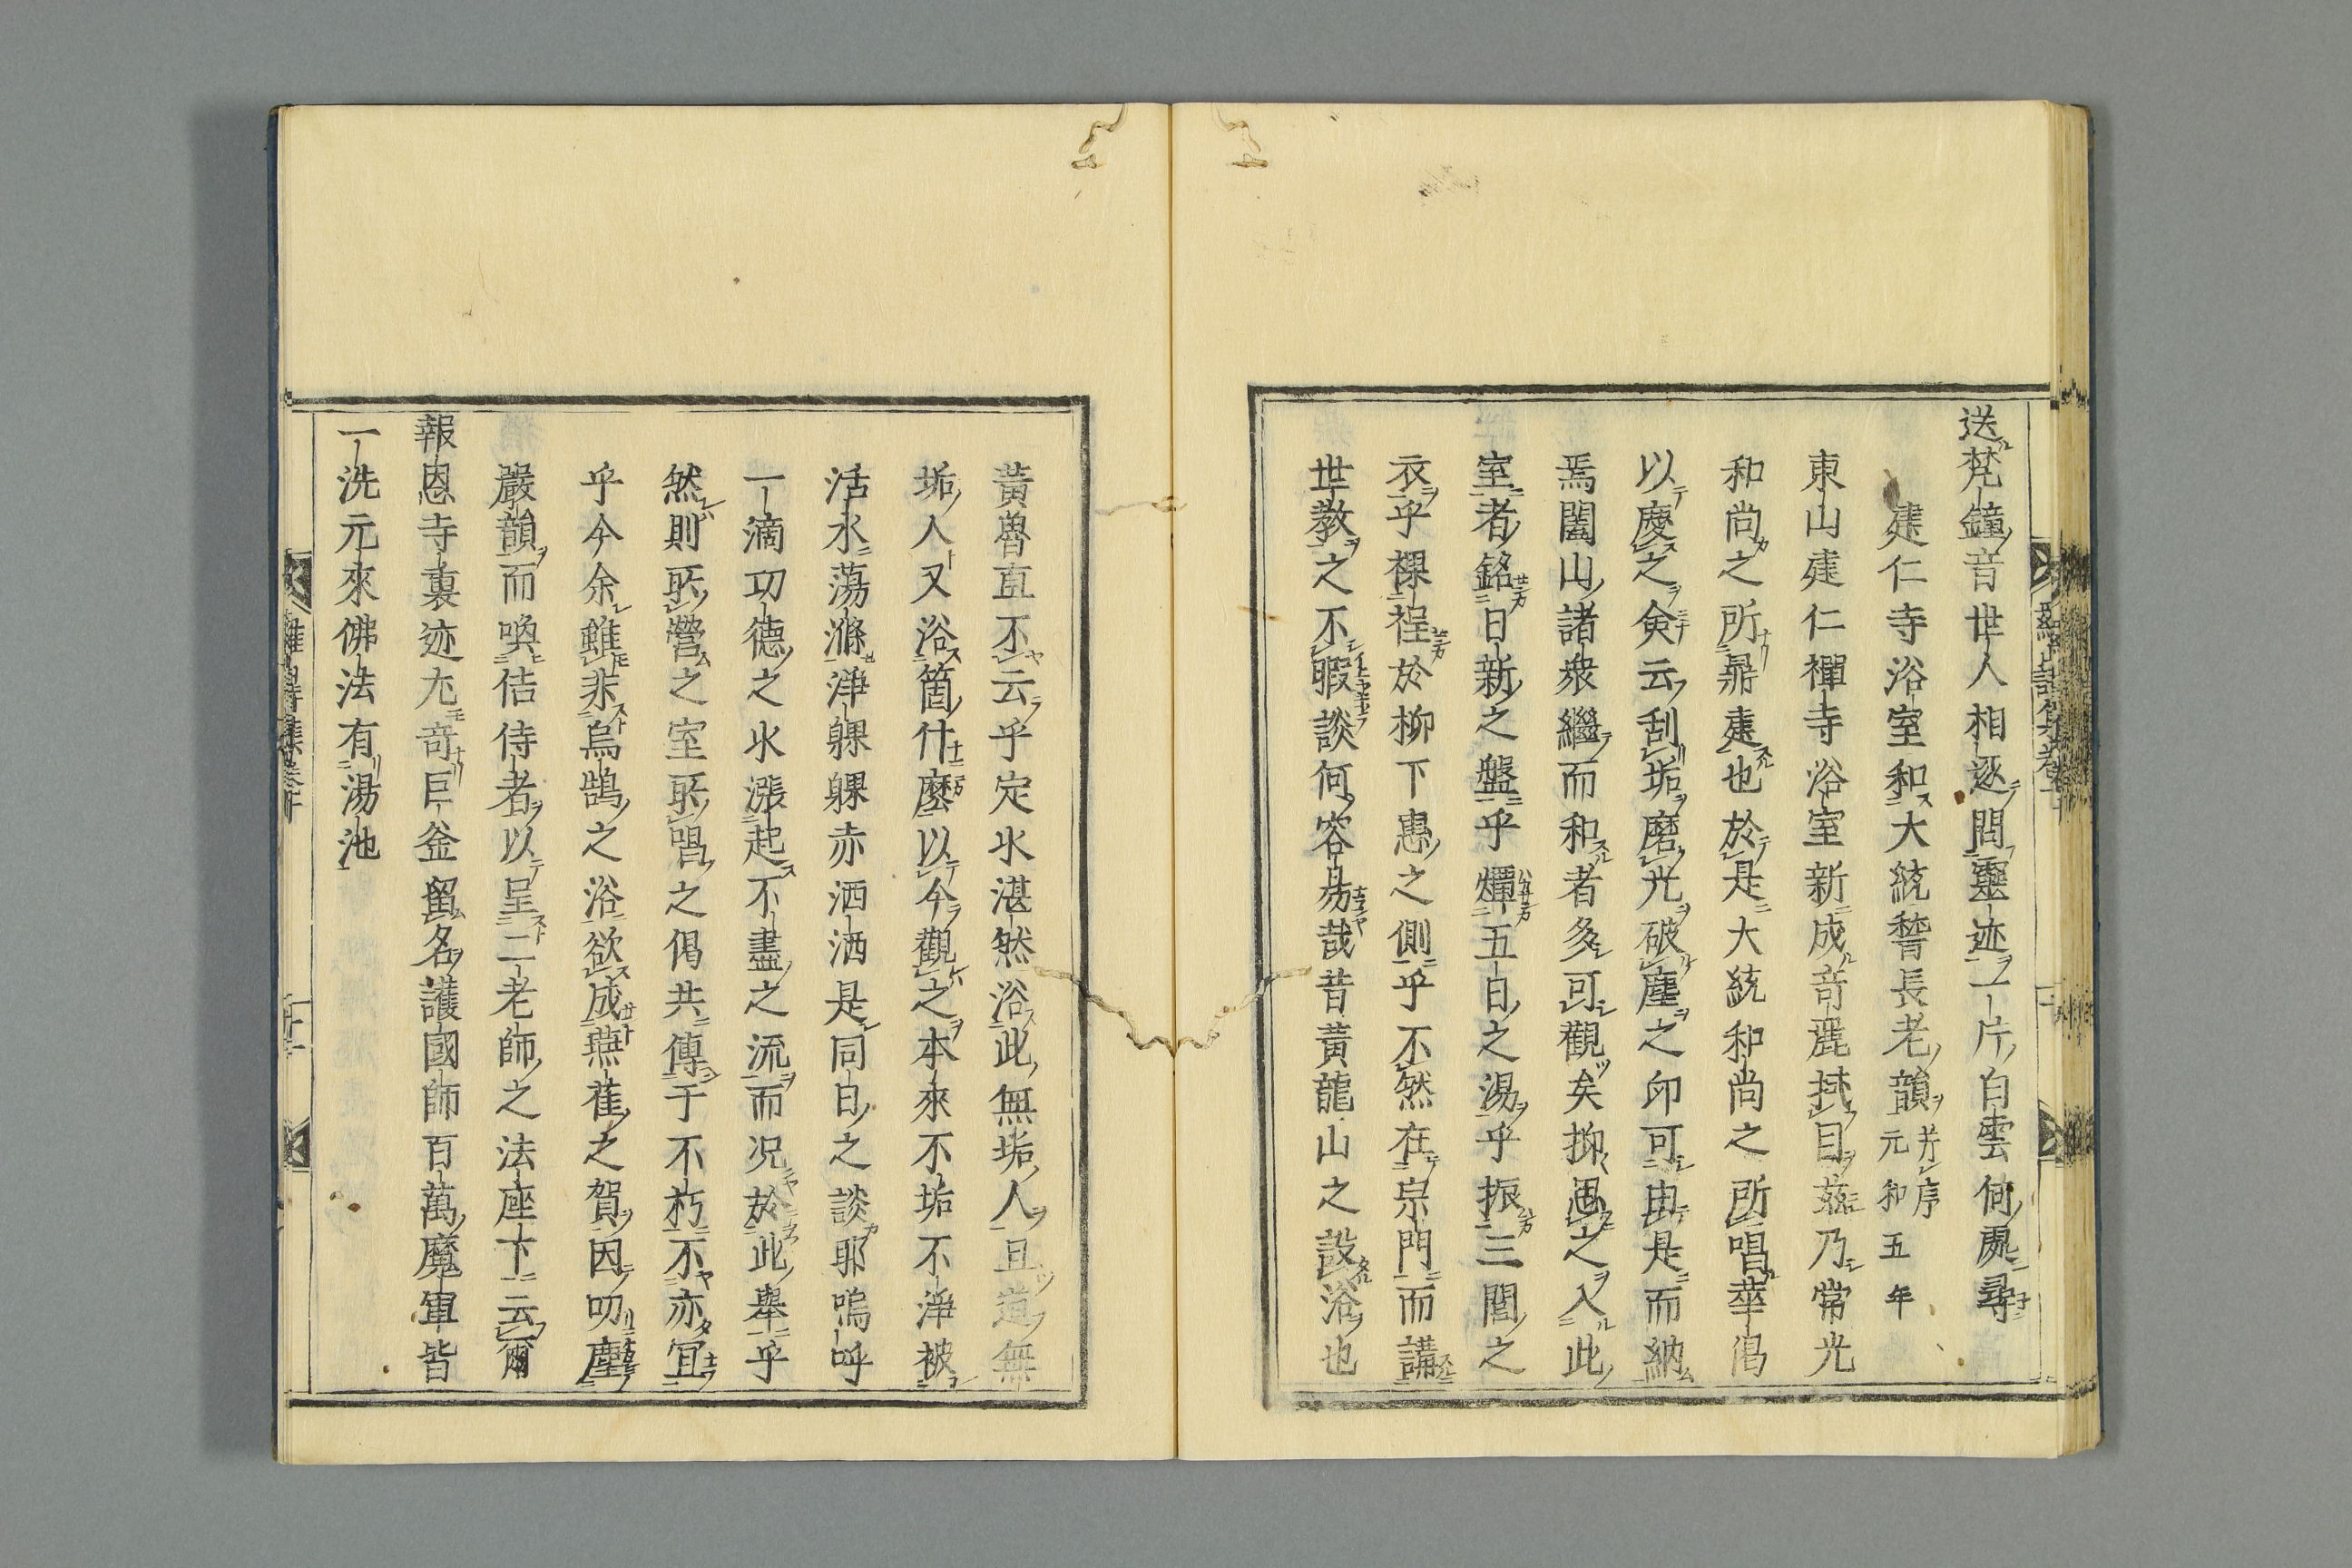 送梵鐘音世人相逐問靈迹一片白雲何處尋
建仁寺浴室和大統謦長老韻 并序 元和五年
東山建仁禪寺浴室新成奇麗拭目茲乃常光
和尚之所鼎建也於是大統和尚之所唱華偈
以慶之矣云刮垢磨光破塵之印可由是而納
焉闔山諸衆繼而和者多可觀矣抑遇之入此
室者銘日新之盤乎燂五日之湯乎振三閭之
衣乎裸裎於柳下惠之側乎不然在宗門而講
世教之不暇談何容易哉昔黃龍山之設浴也
黃魯直不云乎定水湛然浴此無垢人且道無
垢人又浴箇什麼以今觀之本來不垢不淨被
活水蕩滌淨躶躶赤洒洒是同日之談耶嗚呼
一滴功德之水漲起不盡之流而况於此舉乎
然則所營之室所唱之偈共傳于不朽不亦宜
乎今余雖非烏鵲之浴欲成燕雀之賀因叨塵
嚴韻而喚佶侍者以呈二老師之法座下云爾
報恩寺裏迹尤奇巨釜留名護國師百萬魔軍皆
一洗元來佛法有湯池